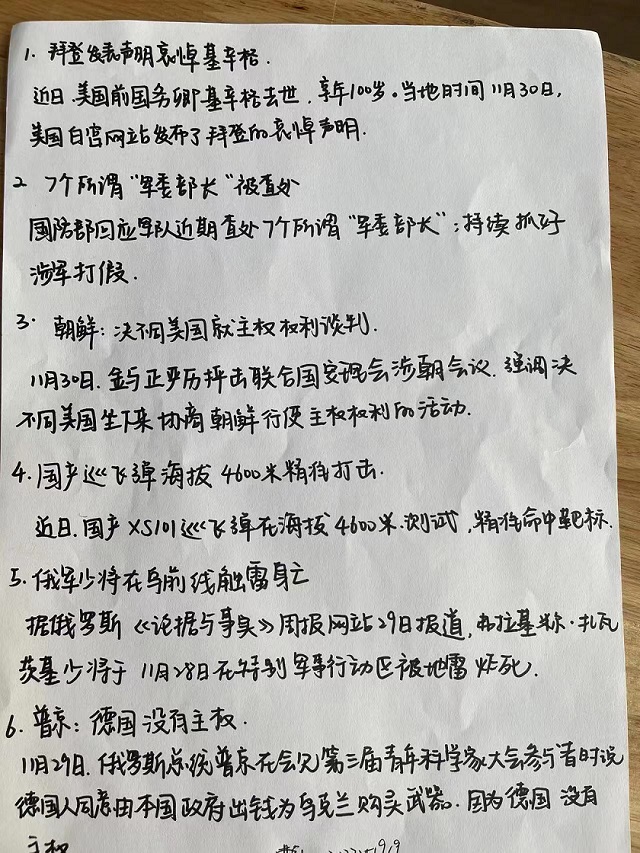 1. 拜登发表声明哀悼基辛格.
近日.美国前国务卿基辛格去世.享年100岁。当地时间11月30日,
美国白宫网站发布了拜登的哀悼声明.
2 7个所谓“军委部长”被查处
国防部回应军队近期查处7个所谓“军委部长”:持续抓好
涉军打假.
3. 朝鲜:决不同美国就主权权利谈判.
11月30日.金与正严厉抨击联合国安理会涉朝会议.强调决
不同美国坐下来协商朝鲜行使主权权利的活动.
4. 国产巡飞弹海拔4600米精准打击.
近日.国产XS101巡飞弹在海拔4600米.测试,精准命中靶标.
5. 俄军少将在乌前线触雷身亡
据俄罗斯《论据与事实》周报网站29日报道,弗拉基米尔·扎瓦
茨基少将于11月28日在特别军事行动区被地雷炸死.
6. 普京:德国没有主权.
11月29日.俄罗斯总统普京在会见第三届青年科学家大会参与者时说
德国人同意由本国政府出钱为乌克兰购买武器.因为德国没有
主权